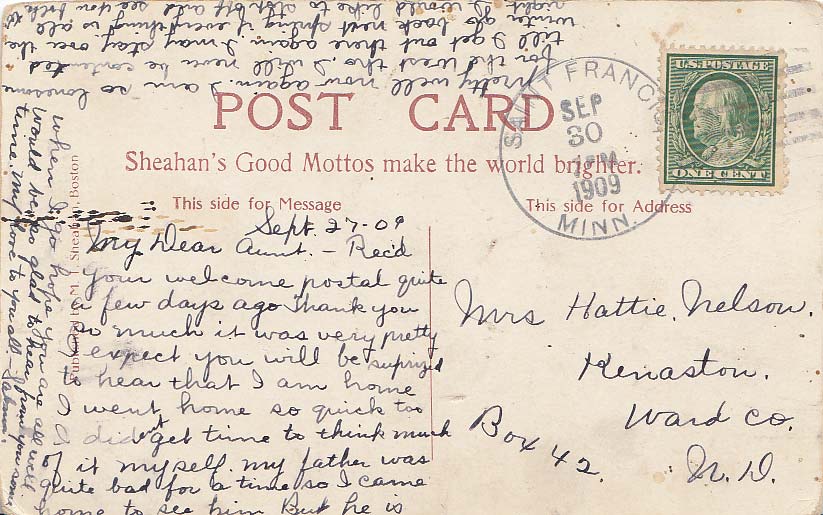 POST CARD
Sheahan's Good Mottos make the world brighter.
This side for Message
This side for Address
U.S. POSTAGE
ONE CENT
SAINT FRANCIS
SEP
30
1909
MINN.
Published by M. T. Sheahan, Boston
Sept. 27-09
My Dear Aunt. - Rec'd
your welcome postal quite
a few days ago Thank you
so much it was very pretty
I expect you will be surprized
to hear that I am home
I went home so quick too
I didn't get time to think much
of it myself. my father was
quite bad for a time so I came
home to see him But he is
pretty well now again. I am so lonesome
for the West tho, I will never be contented
till I get out there again. I may stay over the
winter go back next spring if everything is all
right I would like to stop off and see you folks
when I go hope you are all well
Would be so glad to hear from you some
time. My love to you all
Mrs Hattie Nelson.
Kenaston.
Ward Co.
N. D.
Box 42.